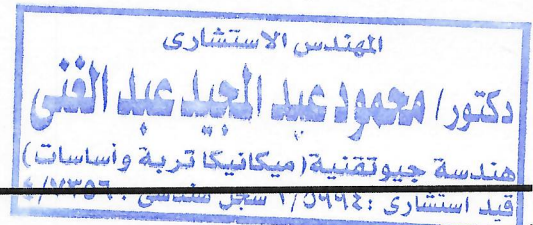 المهندس الاستشارى
دكتور/ محمود عبد المجيد عبد الغنى
هندسة جيوتقنية (ميكانيكا تربة وأساسات)
قيد استشارى : سجل هندسى :